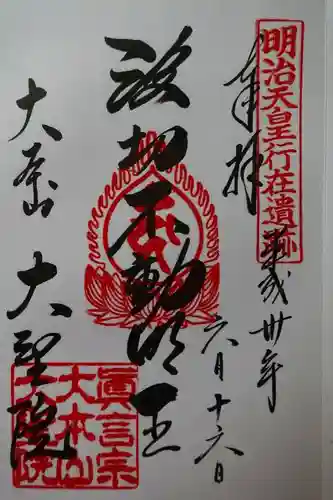 明治天皇行在遺跡
奉拝
平成卅年
六月十六日
波切不動明王
大本山 大聖院
眞言宗
大本山